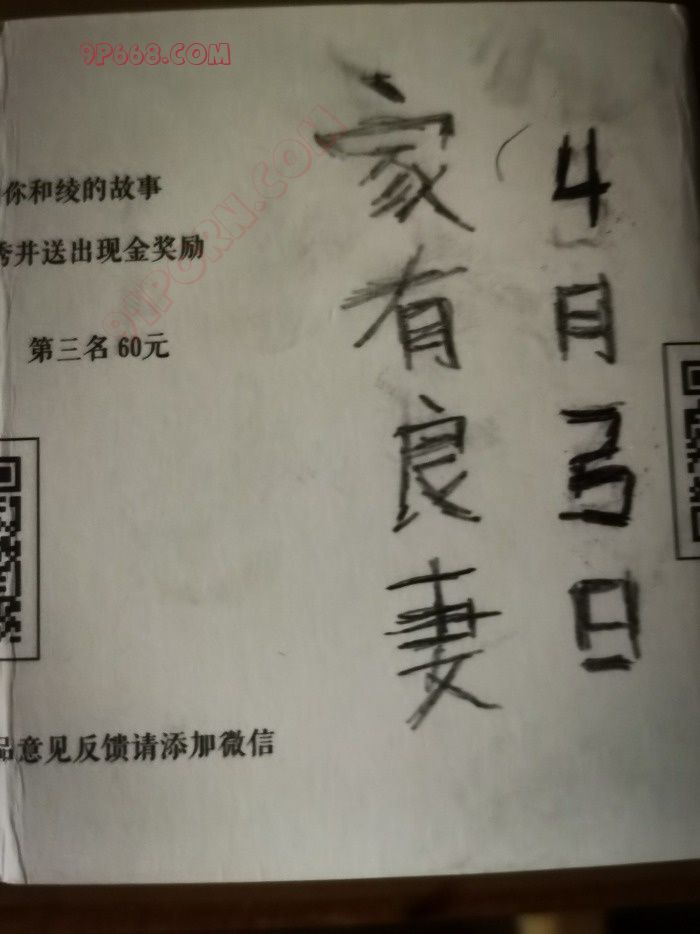 9P668.COM
91PORN.COM
你和绫的故事
秀并送出现金奖励
第三名 60元
品意见反馈请添加微信
4月3日
家有良妻